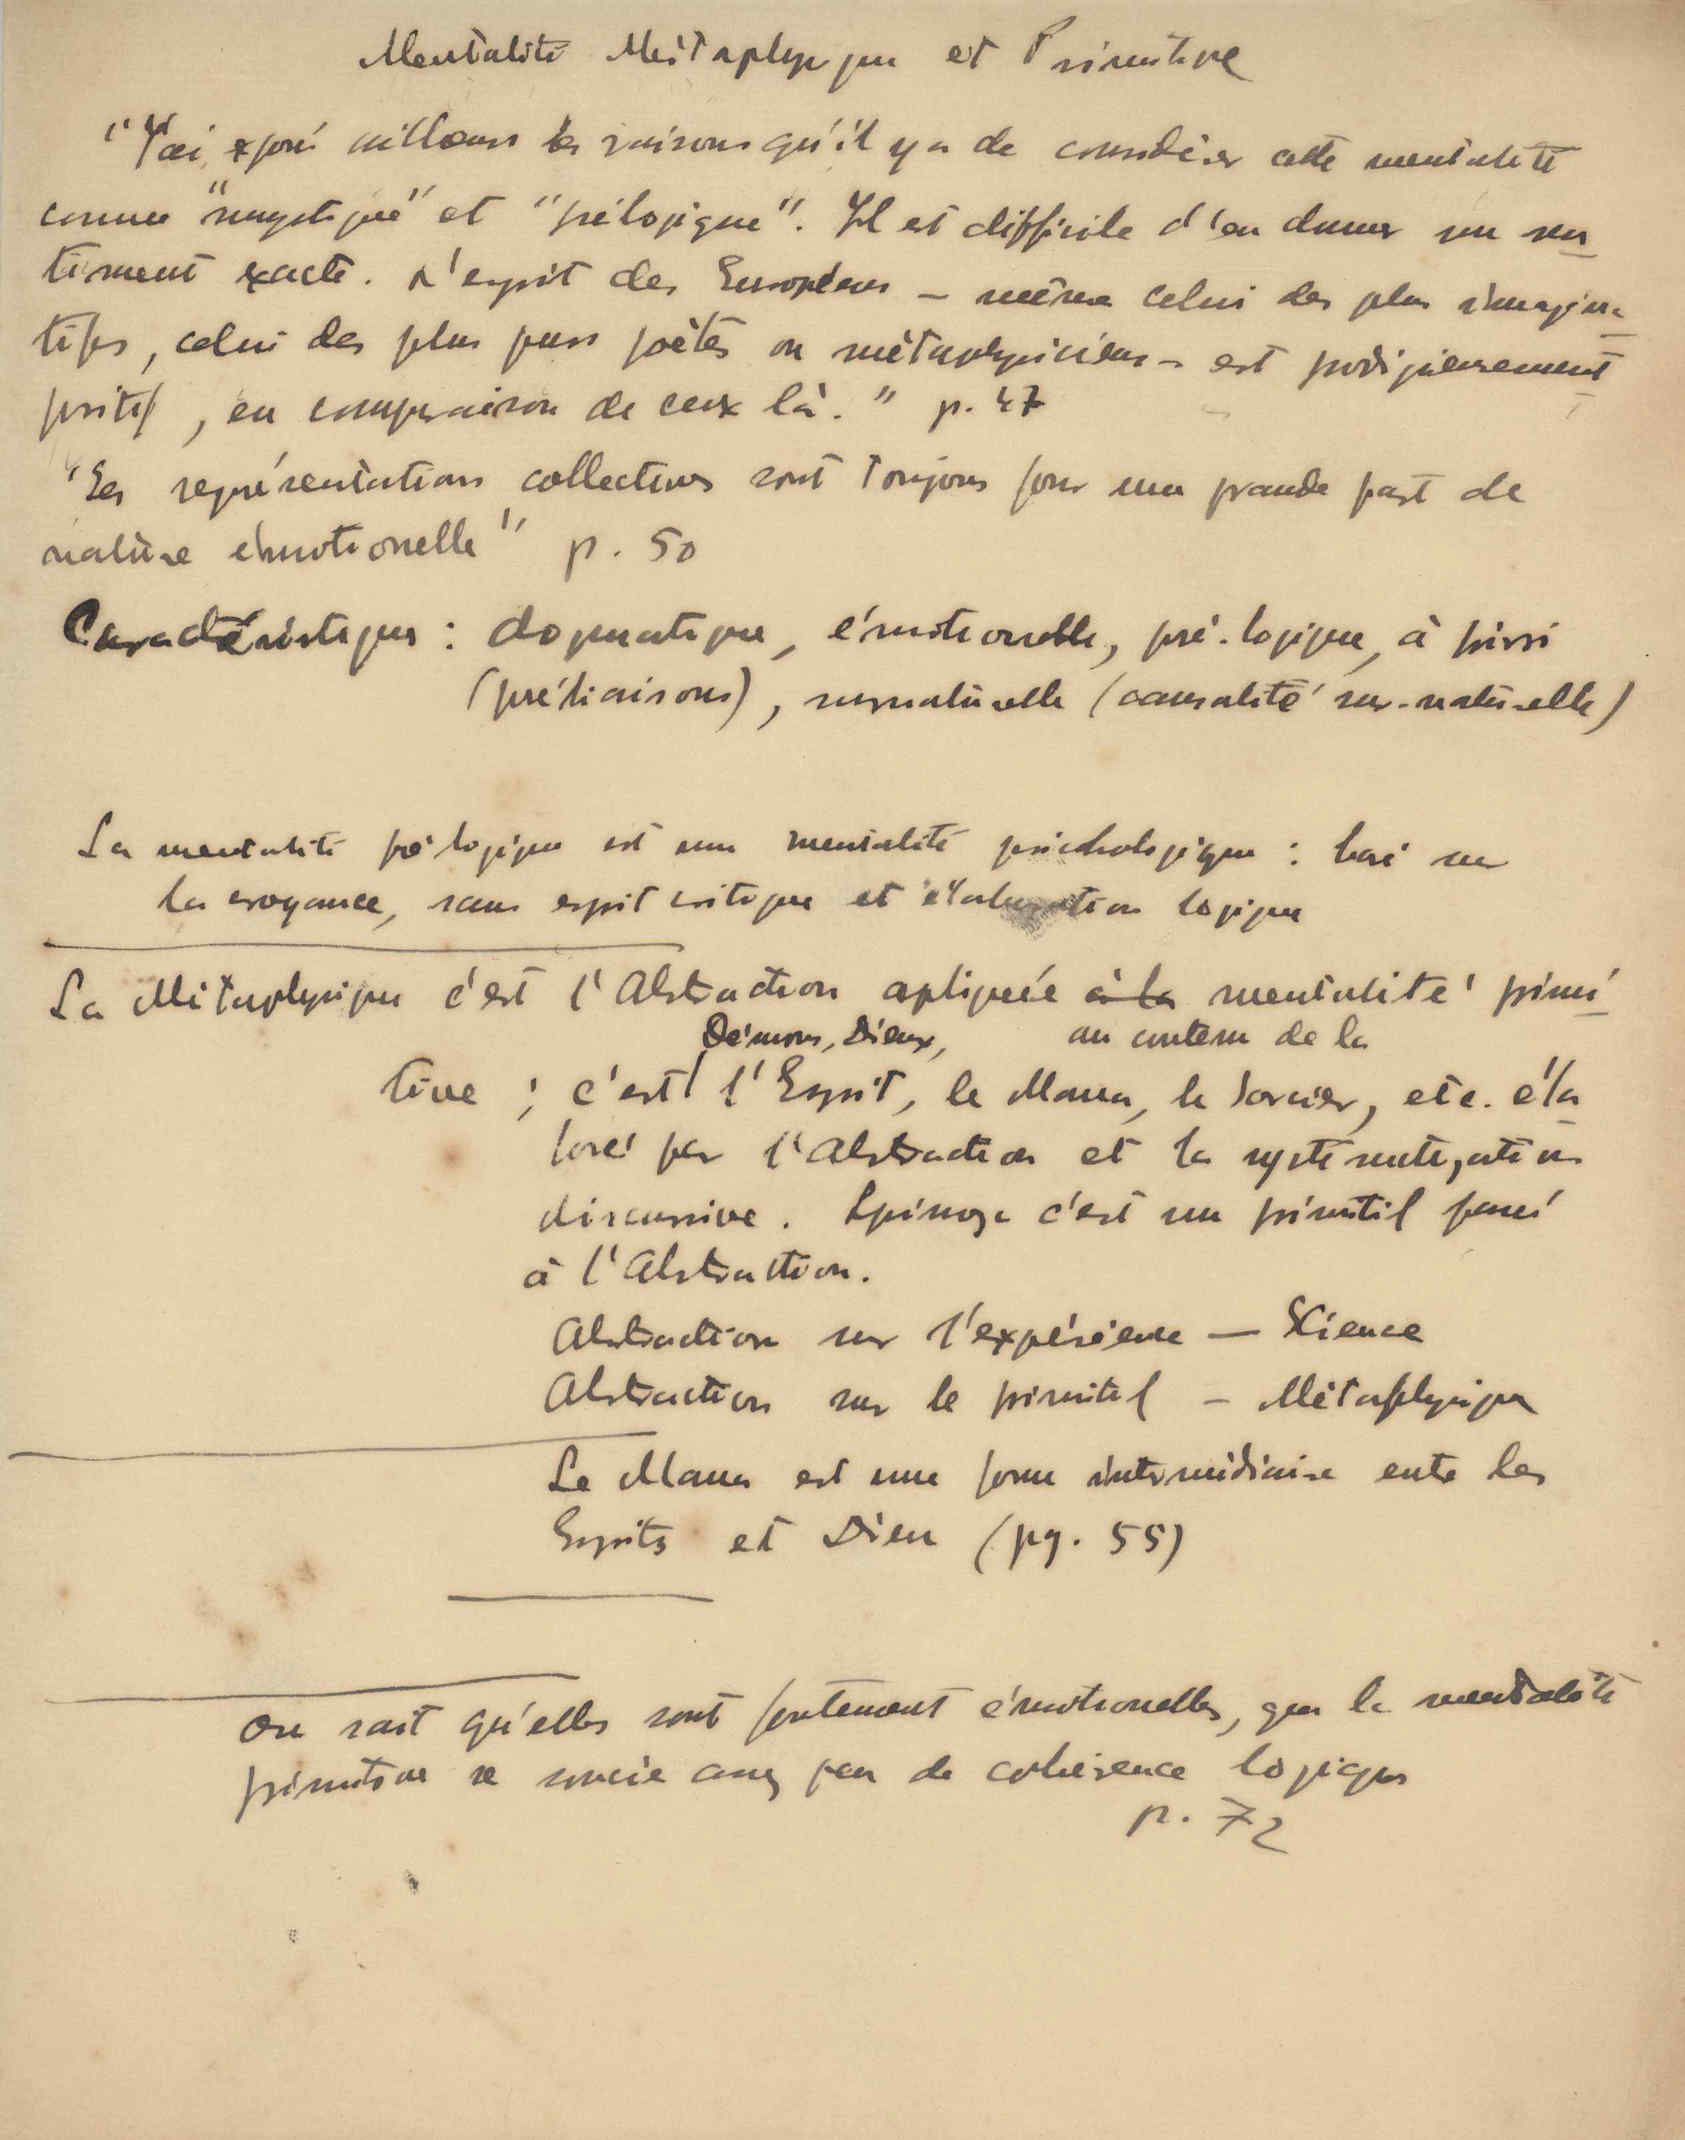 Mentalité Métaphysique et Primitive
"J'ai exposé ailleurs les raisons qu'il y a de considérer cette mentalité
comme "mystique" et "prélogique". Il est difficile d'en donner un sen
timent exacte. L'esprit des Européens – même celui des plus imagina
tifs, celui des plus purs poètes ou métaphysiciens – est prodigieusement
positif, en comparaison de ceux là." p. 47
"Les représentations collectives sont toujours pour une grande part de
nature émotionelle" p. 50
Caractéristiques : dogmatique, émotionelle, pré-logique, à priori
(préliaisons), surnaturelle (causalité sur-naturelle)
La mentalité prélogique est une mentalité psichologique : basé sur
la croyance, sans esprit critique et élaboration logique
La Métaphysique c'est l'Abstraction apliquée à la mentalité primi
Démons, Dieux, au contenu de la
tive ; c'est l'Esprit, le Mana, le Sorcier, etc. éla
boré par l'Abstraction et la systématization
discursive. Spinoza c'est un primitif passé
à l'Abstraction.
Abstraction sur l'expérience — Science
Abstraction sur le primitif – Métaphysique
Le Mana est une forme intermédiaire entre les
Esprits et Dieu (pg. 55)
on sait qu'elles sont fortement émotionelles, que la mentalité
primitive se soucie assez peu de cohérence logique
p. 72